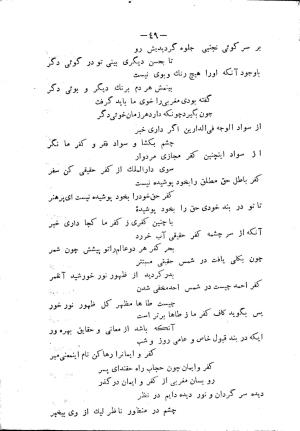 —٤٩—
بر سر کوئی نجنبی جلوه گر دیدیش رو
تا بحسن دیگری بینی تو در کوئی دگر
باوجود آنکه اورا هیچ رنك وبوی نیست
بینمش هر دم برنك دیگر و بوئی دگر
گفته بودی مغربی را خوی ما باید گرفت
چون بگیرد چونکه دارد هر زمان خوئی دگر
از سواد الوجه فی الدارین اگر داری خبر
چشم بکشا و سواد فقر و کفر ما نگر
از سواد اینچنین کفر مجازی مردوار
سوی دارالملك از کفر حقیقی کن سفر
کفر باطل حق مطلق را بخود پوشیده نیست
کفر حق خود را بخود پوشیده نیست ای پرهنر
تا تو در بند خودی حق را بخود پوشیدهٔ
با چنین کفری ز کفر ما کجا داری خبر
آنکه از سر چشمه کفر حقیقی آب خورد
بحر کفر هر دو عالم را تو پیشش چون شمر
چون بکلی یافت در شمس حقیقی مستتر
بدر گردید از ظهور نور خورشید آنقمر
کفر احمد چیست در شمس احد مخفی شدن
چیست طا ها مظهر کل ظهور نور خور
پس بگوید کاف کفر ما ز طاها برتر است
آنکه باشد از معانی و حقایق بهره ور
ایکه در بند قبول خاص و عامی روز و شب
کفر و ایمانرا رها کن نام اینمعنی مبر
کفر و ایمان چون حجاب راه حقند ای پسر
رو بسان مغربی از کفر و ایمان درگذر
دیده سر گردان و نور دیده دایم در نظر
چشم در منظور ناظر لیك از وی بیخبر